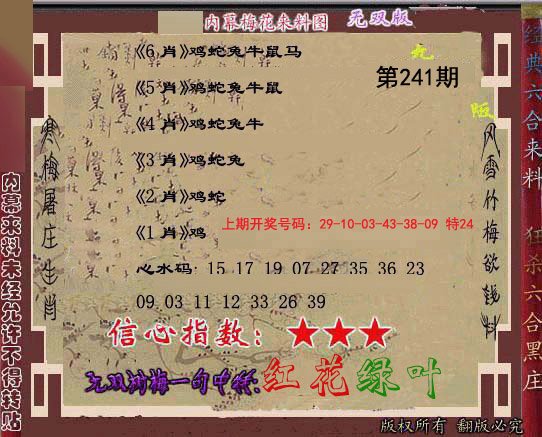 内幕梅花来料图 无双版
第241期
《6 肖》鸡蛇兔牛鼠马
《5 肖》鸡蛇兔牛鼠
《4 肖》鸡蛇兔牛
《3 肖》鸡蛇兔
《2 肖》鸡蛇
上期开奖号码：29-10-03-43-38-09 特24
《1 肖》鸡
心水码: 15 17 19 07 27 35 36 23
09 03 11 12 33 26 39
信心指数：★★★
红花绿叶
版权所有 翻版必究
寒梅屠庄生肖
风雪竹梅欲钱料
内幕来料未经允许不得转贴
经典六合来料
狂杀六合黑庄